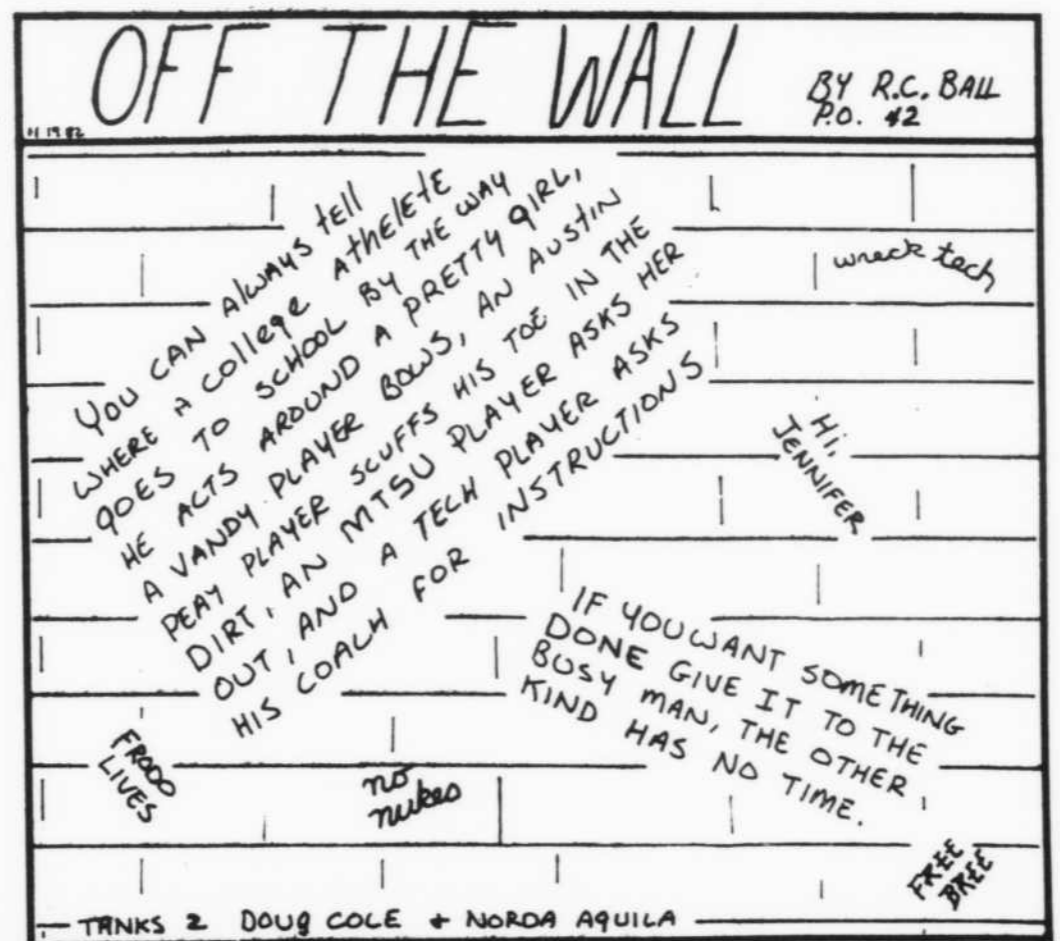 OFF THE WALL
BY R.C. BALL
P.O. 42
11 19 82
YOU CAN AlWAYS tEll
WHERE A COllEgE AthElEtE
gOES TO SCHOOL BY THE WAY
HE ACTS AROUND A PRETTY gIRL,
A VANDY PLAYER BOWS, AN AUSTIN
PEAY PLAYER SCUFFS HIS TOE IN THE
DIRT, AN MTSU PLAYER ASKS HER
OUT, AND A TECH PLAYER ASKS
HIS COACH FOR INSTRUCTIONS
wreck tech
Hi,
JENNIFER
IF YOU WANT SOMETHING
DONE GIVE IT TO THE
BUSY MAN, THE OTHER
KIND HAS NO TIME.
FRODO
LIVES
no
nukes
FREE
BREE
TANKS 2 DOUg COLE + NORDA AQUILA